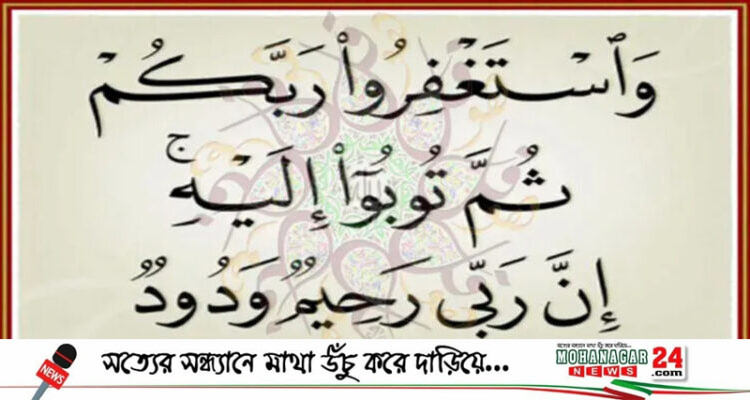 وَٱسْتَغْفِرُوا۟ رَبَّكُمْ
ثُمَّ تُوبُوٓا۟ إِلَيْهِ ۚ
إِنَّ رَبِّى رَحِيمٌ وَدُودٌ
সত্যের সন্ধ্যানে মাথা উঁচু করে দাড়িয়ে...
MOHANAGAR 24
NEWS .com
NEWS